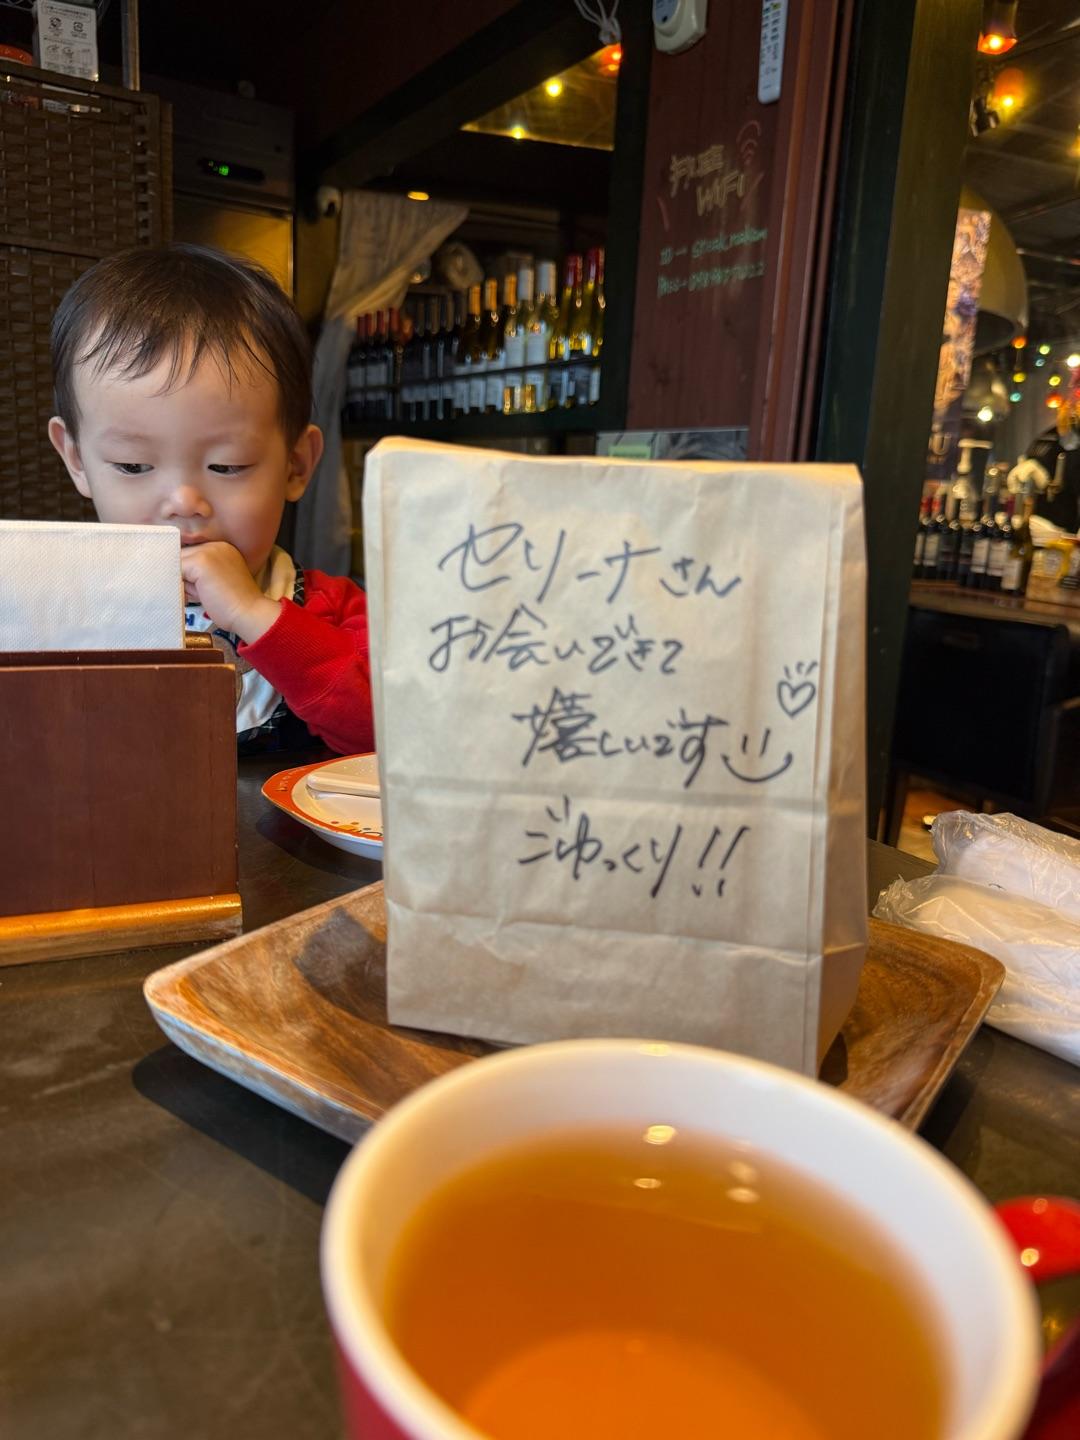 無料
WIFI
セリーナさん
お会いできて
嬉しいです
ごゆっくり!!